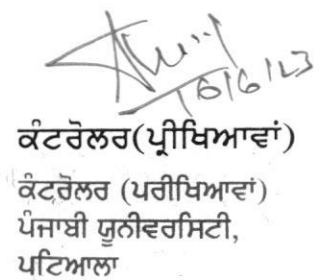 16/6/23
ਕੰਟਰੋਲਰ(ਪ੍ਰੀਖਿਆਵਾਂ)
ਕੰਟਰੋਲਰ (ਪਰੀਖਿਆਵਾਂ)
ਪੰਜਾਬੀ ਯੂਨੀਵਰਸਿਟੀ,
ਪਟਿਆਲਾ